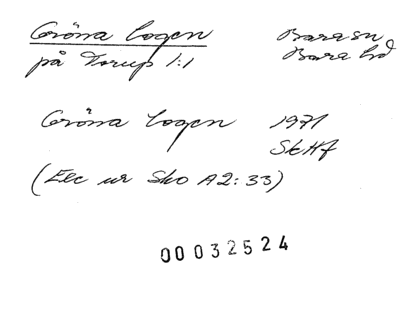 Gröna Logen Bara sn
på Torup 1:1 Bara hd
Gröna Logen 1971
SkHf
(Exc ur Sko A2:33)
00032524